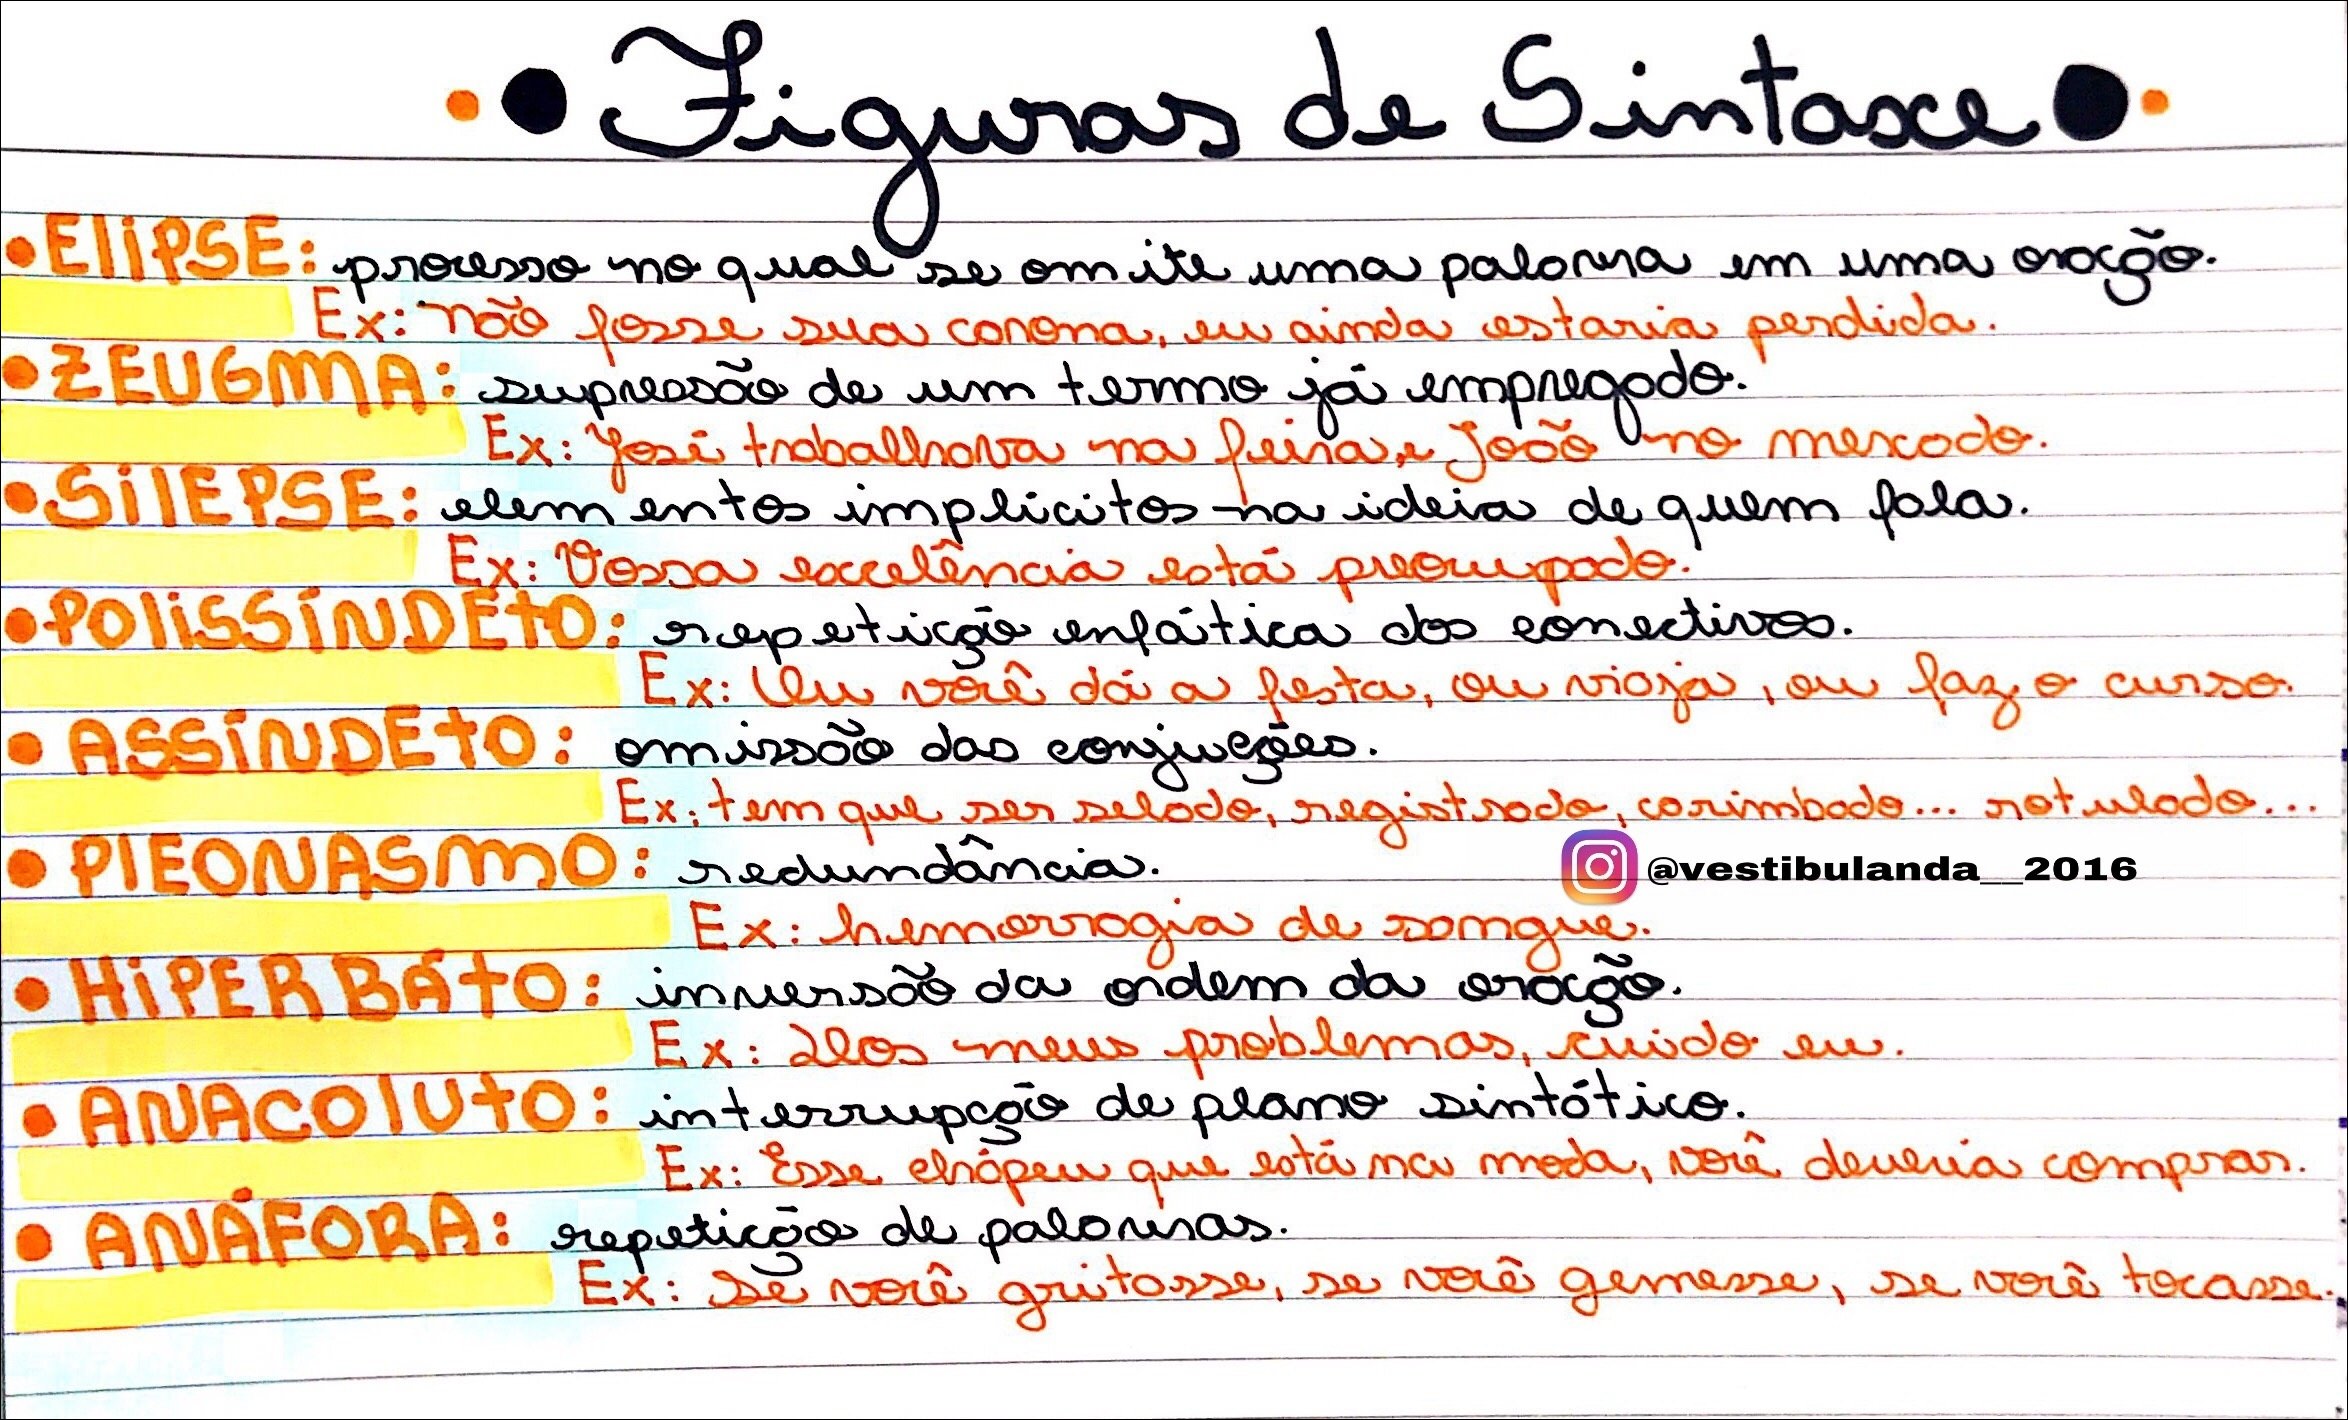 Figuras de Sintaxe
• ELIPSE: processo no qual se omite uma palavra em uma oração.
Ex: Não fosse sua carona, eu ainda estaria perdida.
• ZEUGMA: supressão de um termo já empregado.
Ex: José trabalhava na feira, e João no mercado.
• SILEPSE: elementos implícitos na ideia de quem fala.
Ex: Vossa excelência está preocupado.
• POLISSÍNDETO: repetição enfática dos conectivos.
Ex: Ou você dá a festa, ou viaja, ou faz o curso.
• ASSÍNDETO: omissão das conjuções.
Ex: tem que ser selado, registrado, carimbado... rotulado...
• PLEONASMO: redundância.
@vestibulanda__2016
Ex: hemorragia de sangue.
• HIPERBÁTO: inversão da ordem da oração.
Ex: Dos meus problemas, cuido eu.
• ANACOLUTO: interrupção de plano sintático.
Ex: Esse chápeu que está na moda, você deveria comprar.
• ANÁFORA: repetição de palavras.
Ex: Se você gritasse, se você gemesse, se você tocasse.